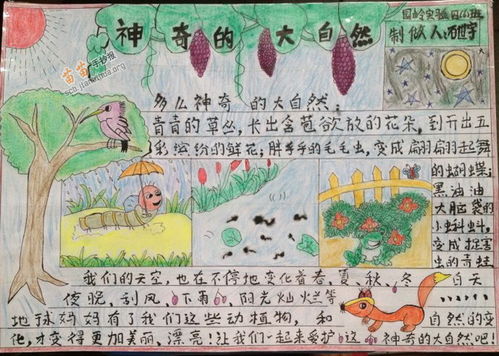 神奇的大自然
国岭实验四小班
制做人:
苗苗手抄报
多么神奇的大自然:
青青的草丛,长出含苞欲放的花朵,到开出五
彩缤纷的鲜花;胖乎乎的毛毛虫,变成扇翩起舞
的蝴蝶;
黑油油
大脑袋的
小蝌蚪,
变成捉害
虫的青蛙
我们的天空,也在不停地变化着春、夏、秋、冬、白天
夜晚,刮风、下雨、阳光灿烂等
地球妈妈有了我们这些动植物,和自然的变
化,才变得更加美丽、漂亮!让我们一起来爱护这神奇的大自然吧!